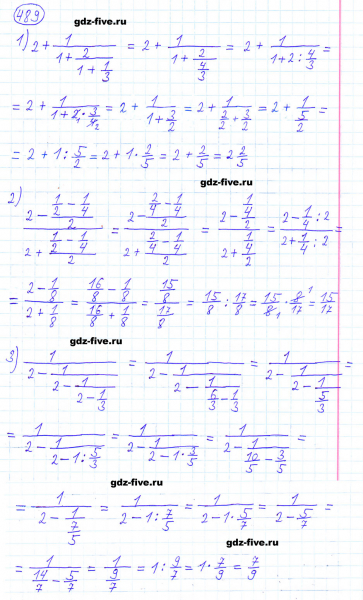 489
gdz-five.ru
1) 2 + 1/(1 + 2/(1 + 1/3)) = 2 + 1/(1 + 2/(4/3)) = 2 + 1/(1 + 2 : 4/3) =
= 2 + 1/(1 + 2 · 3/4) = 2 + 1/(1 + 3/2) = 2 + 1/(2/2 + 3/2) = 2 + 1/(5/2) =
= 2 + 1 : 5/2 = 2 + 1 · 2/5 = 2 + 2/5 = 2 2/5
gdz-five.ru
2) (2 - (1/2 - 1/4)/2)/(2 + (1/2 - 1/4)/2) = (2 - (2/4 - 1/4)/2)/(2 + (2/4 - 1/4)/2) = (2 - (1/4)/2)/(2 + (1/4)/2) = (2 - 1/4 : 2)/(2 + 1/4 : 2) =
= (2 - 1/8)/(2 + 1/8) = (16/8 - 1/8)/(16/8 + 1/8) = (15/8)/(17/8) = 15/8 : 17/8 = 15/8 · 8/17 = 15/17
gdz-five.ru
3) 1/(2 - 1/(2 - 1/(2 - 1/3))) = 1/(2 - 1/(2 - 1/(6/3 - 1/3))) = 1/(2 - 1/(2 - 1/(5/3))) =
= 1/(2 - 1/(2 - 1 : 5/3)) = 1/(2 - 1/(2 - 1 · 3/5)) = 1/(2 - 1/(10/5 - 3/5)) =
gdz-five.ru
= 1/(2 - 1/(7/5)) = 1/(2 - 1 : 7/5) = 1/(2 - 1 · 5/7) = 1/(2 - 5/7) =
gdz-five.ru
= 1/(14/7 - 5/7) = 1/(9/7) = 1 : 9/7 = 1 · 7/9 = 7/9
gdz-five.ru